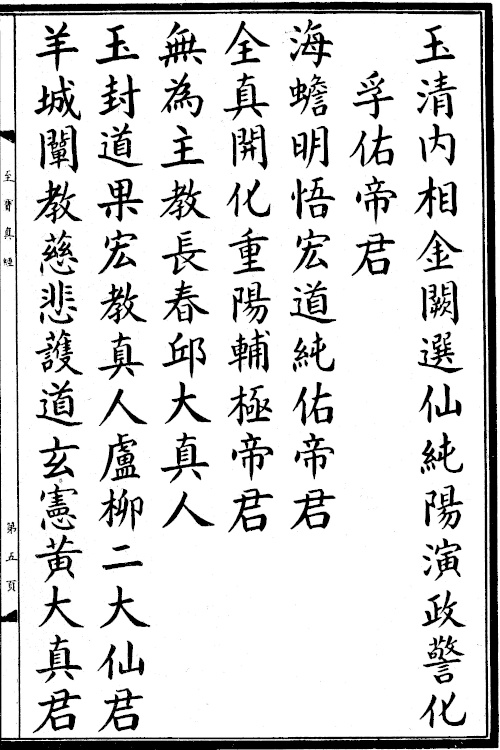 玉清內相金闕選仙純陽演政警化
孚佑帝君
海蟾明悟宏道純佑帝君
全真開化重陽輔極帝君
無為主教長春邱大真人
玉封道果宏教真人盧柳二大仙君
羊城闡教慈悲護道玄憲黃大真君
至寶真經
第五頁